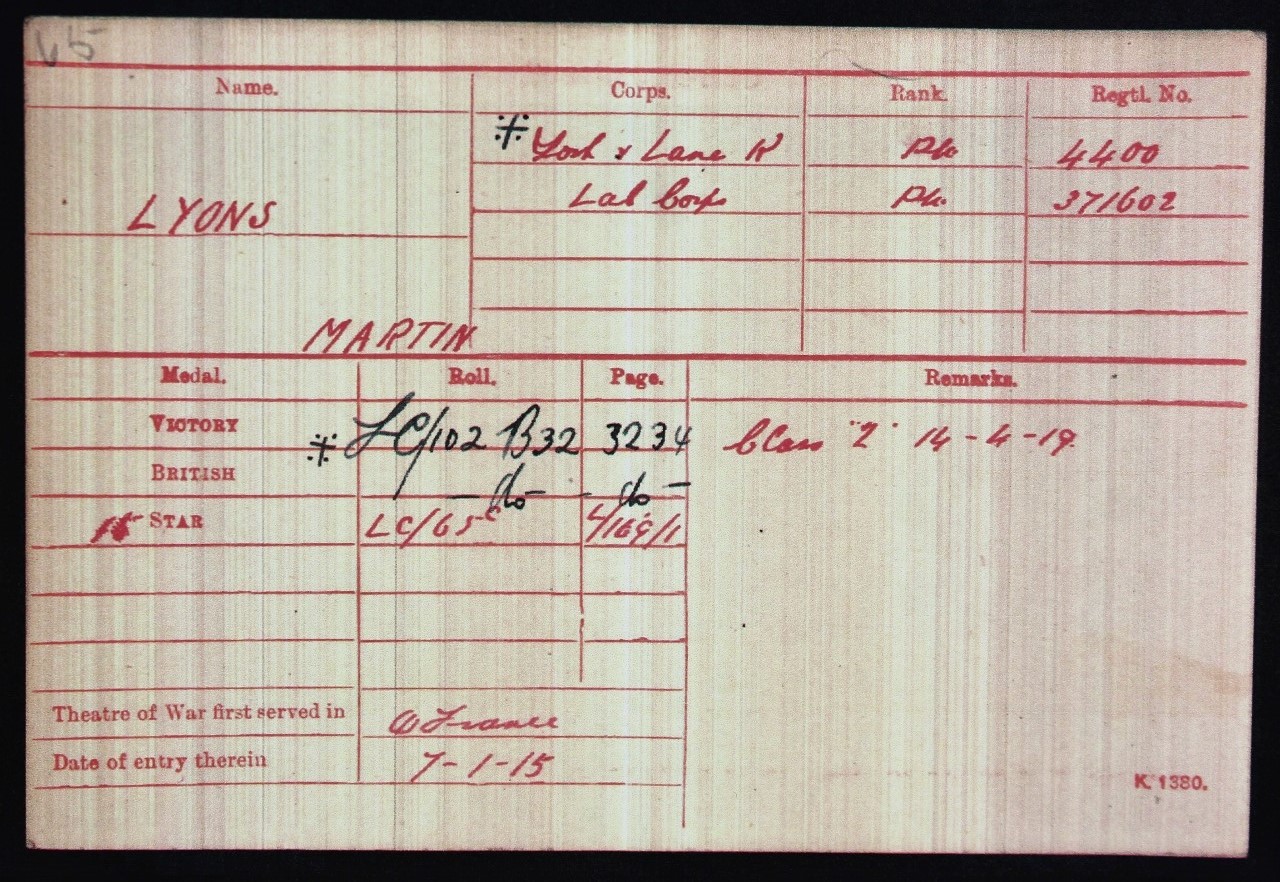 65
Name. Corps. Rank. Regtl. No.
York & Lanc R Pte 4400
LYONS Lab Corps Pte. 371602
MARTIN
Medal. Roll. Page. Remarks.
VICTORY LC/102 B32 3234 Class "Z" 14-4-19.
BRITISH - do - - do -
15 STAR LC/65C L/169/1
Theatre of War first served in (1) France
Date of entry therein 7-1-15
K. 1380.